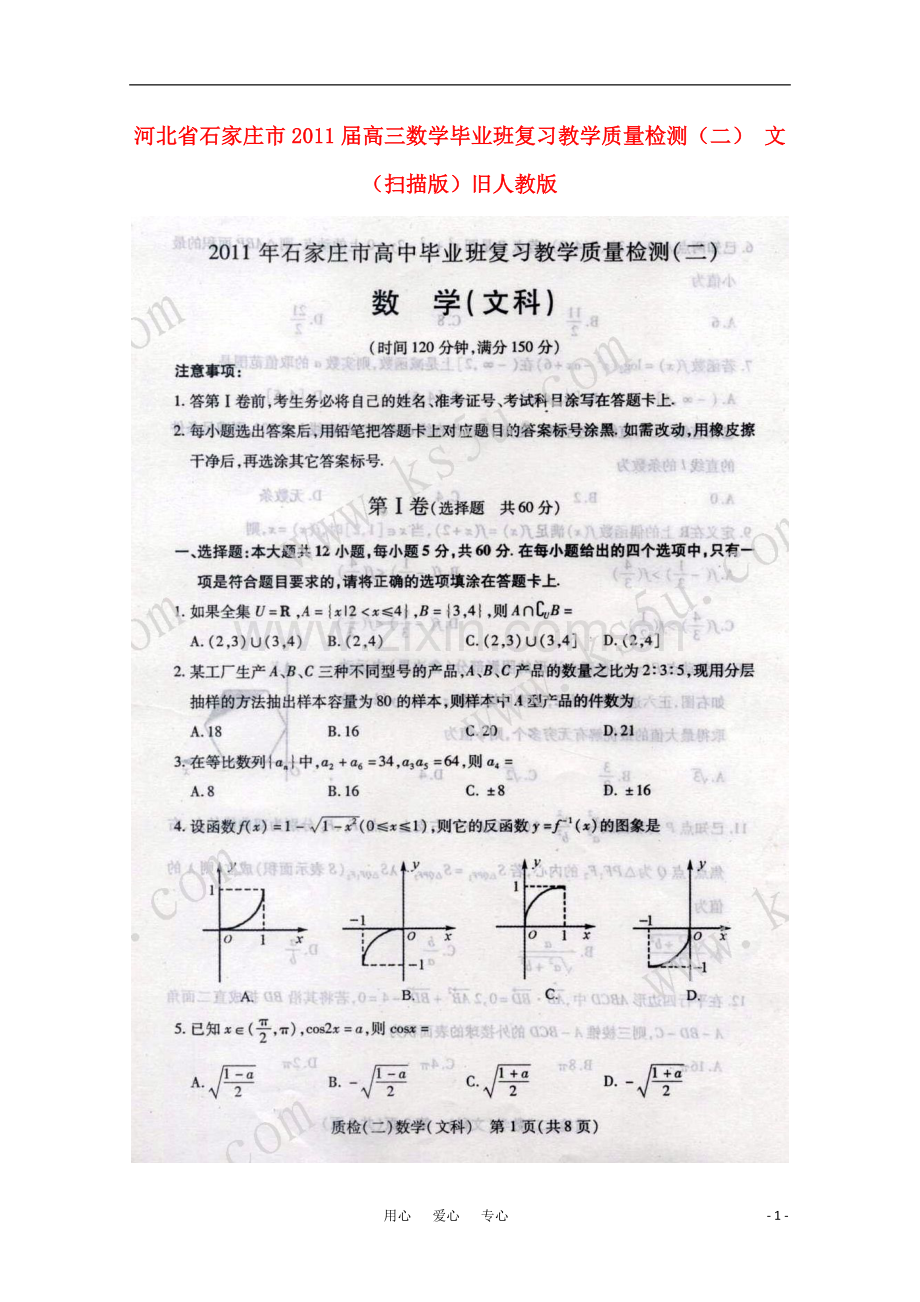 河北省石家庄市 2011 届高三数学毕业班复习教学质量检测（二） 文
（扫描版）旧人教版
2011 年石家庄市高中毕业班复习教学质量检测(二)
数 学(文科)
(时间120分钟,满分150分)
注意事项:
1. 答第Ⅰ卷前,考生务必将自己的姓名、准考证号、考试科目涂写在答题卡上.
2. 每小题选出答案后,用铅笔把答题卡上对应题目的答案标号涂黑.如需改动,用橡皮擦
干净后,再选涂其它答案标号.
第Ⅰ卷(选择题 共60分)
一、选择题:本大题共12小题,每小题5分,共60分.在每小题给出的四个选项中,只有一
项是符合题目要求的,请将正确的选项填涂在答题卡上.
1. 如果全集U=R,A={x|2<x≤4},B={3,4},则A∩∁UB=
A.(2,3)∪(3,4) B.(2,4) C.(2,3)∪(3,4] D.(2,4]
2. 某工厂生产A、B、C三种不同型号的产品,A、B、C产品的数量之比为2:3:5,现用分层
抽样的方法抽出样本容量为80的样本,则样本中A型产品的件数为
A.18 B.16 C.20 D.21
3. 在等比数列{an}中,a2+a6=34,a3a5=64,则a4=
A.8 B.16 C. ±8 D. ±16
4. 设函数f(x)=1-√(1-x²)(0≤x≤1),则它的反函数y=f⁻¹(x)的图象是
y 1 O 1 x
y -1 O x -1
y 1 O 1 x
y -1 O x -1
A. B. C. D.
5. 已知x∈(π/2,π),cos2x=a,则cosx=
A. √((1-a)/2) B. -√((1-a)/2) C. √((1+a)/2) D. -√((1+a)/2)
质检(二)数学(文科) 第1页(共8页)
www.ks5u.com
www.zixin.com
用心 爱心 专心 - 1 -